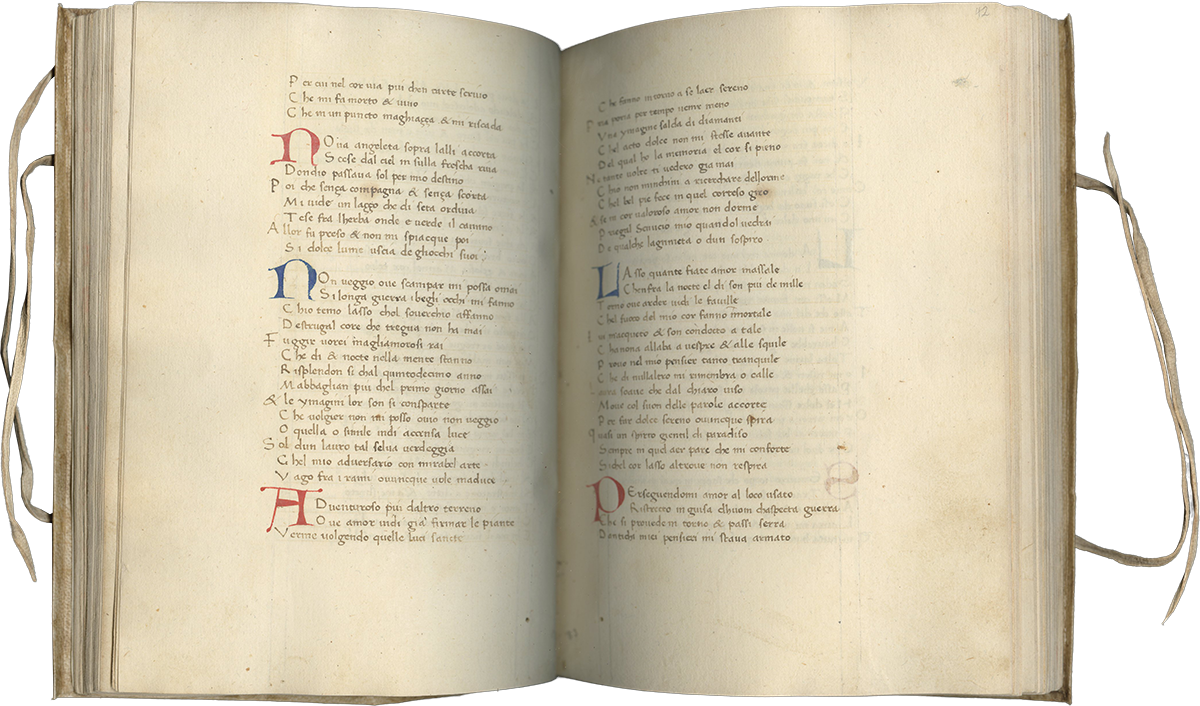 Per cui nel cor uia piu chen carte scriuo
Che mi fa morto & uiuo
Che in un puncto maghiaccia & mi riscalda
NOua angeleta sopra lalli accorta
Scese dal ciel in sulla frescha riua
Dondio passaua sol per mio destino
Poi che sença compagna & sença scorta
Mi uide un laccio che di seta ordiua
Tese fra lherba onde e uerde il camino
Allor fu preso & non mi spiacque poi
Si dolce lume uscia de ghocchi suoi
NOn ueggio oue scampar mi possa omai
Si longa guerra ibegli occhi mi fanno
Chio temo lasso chel souerchio affanno
Destrugal core che tregua non ha mai
Fuggir uorei magliamorosi rai
Che di & nocte nella mente stanno
Risplendon si chal quintodecimo anno
Mabbaglian piu chel primo giorno assai
& le ymagini lor son si consparte
Che uolgier non mi posso ouio non ueggio
O quella o simile indi accensa luce
Sol dun lauro tal selua uerdeggia
Chel mio aduersario con mirabel arte
Vago fra i rami ouuncque uole maduce
ADuenturoso piu daltro terreno
Oue amor uidi gia firmar le piante
Verme uolgendo quelle luci sancte
92
Che fanno intorno a se laer sereno
Prima poria per tempo uenire meno
Vna ymagine salda di diamanti
Chel acto dolce non mi stesse auante
Del qual ho la memoria el cor si pieno
Ne tante uolte ti uedero gia mai
Chio non minchini a ricerchare dellorme
Chel bel pie fece in quel cortese giro
& se in cor ualoroso amor non dorme
Priegal Senucio mio quandol uedrai
De qualche lagrimeta o dun sospiro
LAsso quante fiate amor massale
Chenfra la nocte el di son piu de mille
Torno oue arder uidi le fauille
Chel fuoco del mio cor fanno immortale
Iui macqueto & son condocto a tale
Cha nona alla ba uespre & alle squile
Prouo nel mio pensier tanto tranquile
Che di nullaltro mi rimembra o calle
Laura soaue che dal chiaro uiso
Moue col suon delle parole accorte
Per far dolce sereno ouuncque spira
Quasi un spirto gientil di paradiso
Sempre in quel aer pare che mi conforte
Si chel cor lasso altroue non respira
PErseguendomi amor al loco usato
Ristretto in guisa dhuom chaspecta guerra
Che si prouede intorno & passi serra
Dantichi miei pensieri mi staua armato